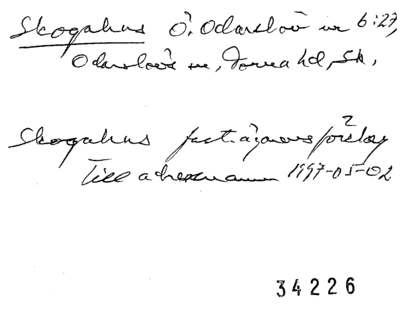 Skogahus Ö. Odarslöv nr 6:27,
Odarslövs sn, Torna hd, Sk.
Skogahus fast.ägares förslag
2
Till adressnamn 1997-05-02
34226